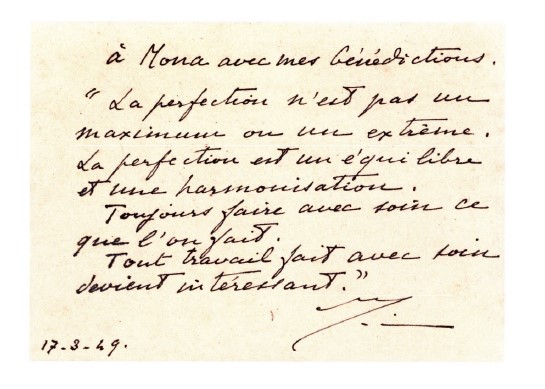 à Mona avec mes bénédictions.
“ La perfection n'est pas un
maximum ou un extrême.
La perfection est un équilibre
et une harmonisation.
Toujours faire avec soin ce
que l'on fait.
Tout travail fait avec soin
devient intéressant.”
17-3-49.